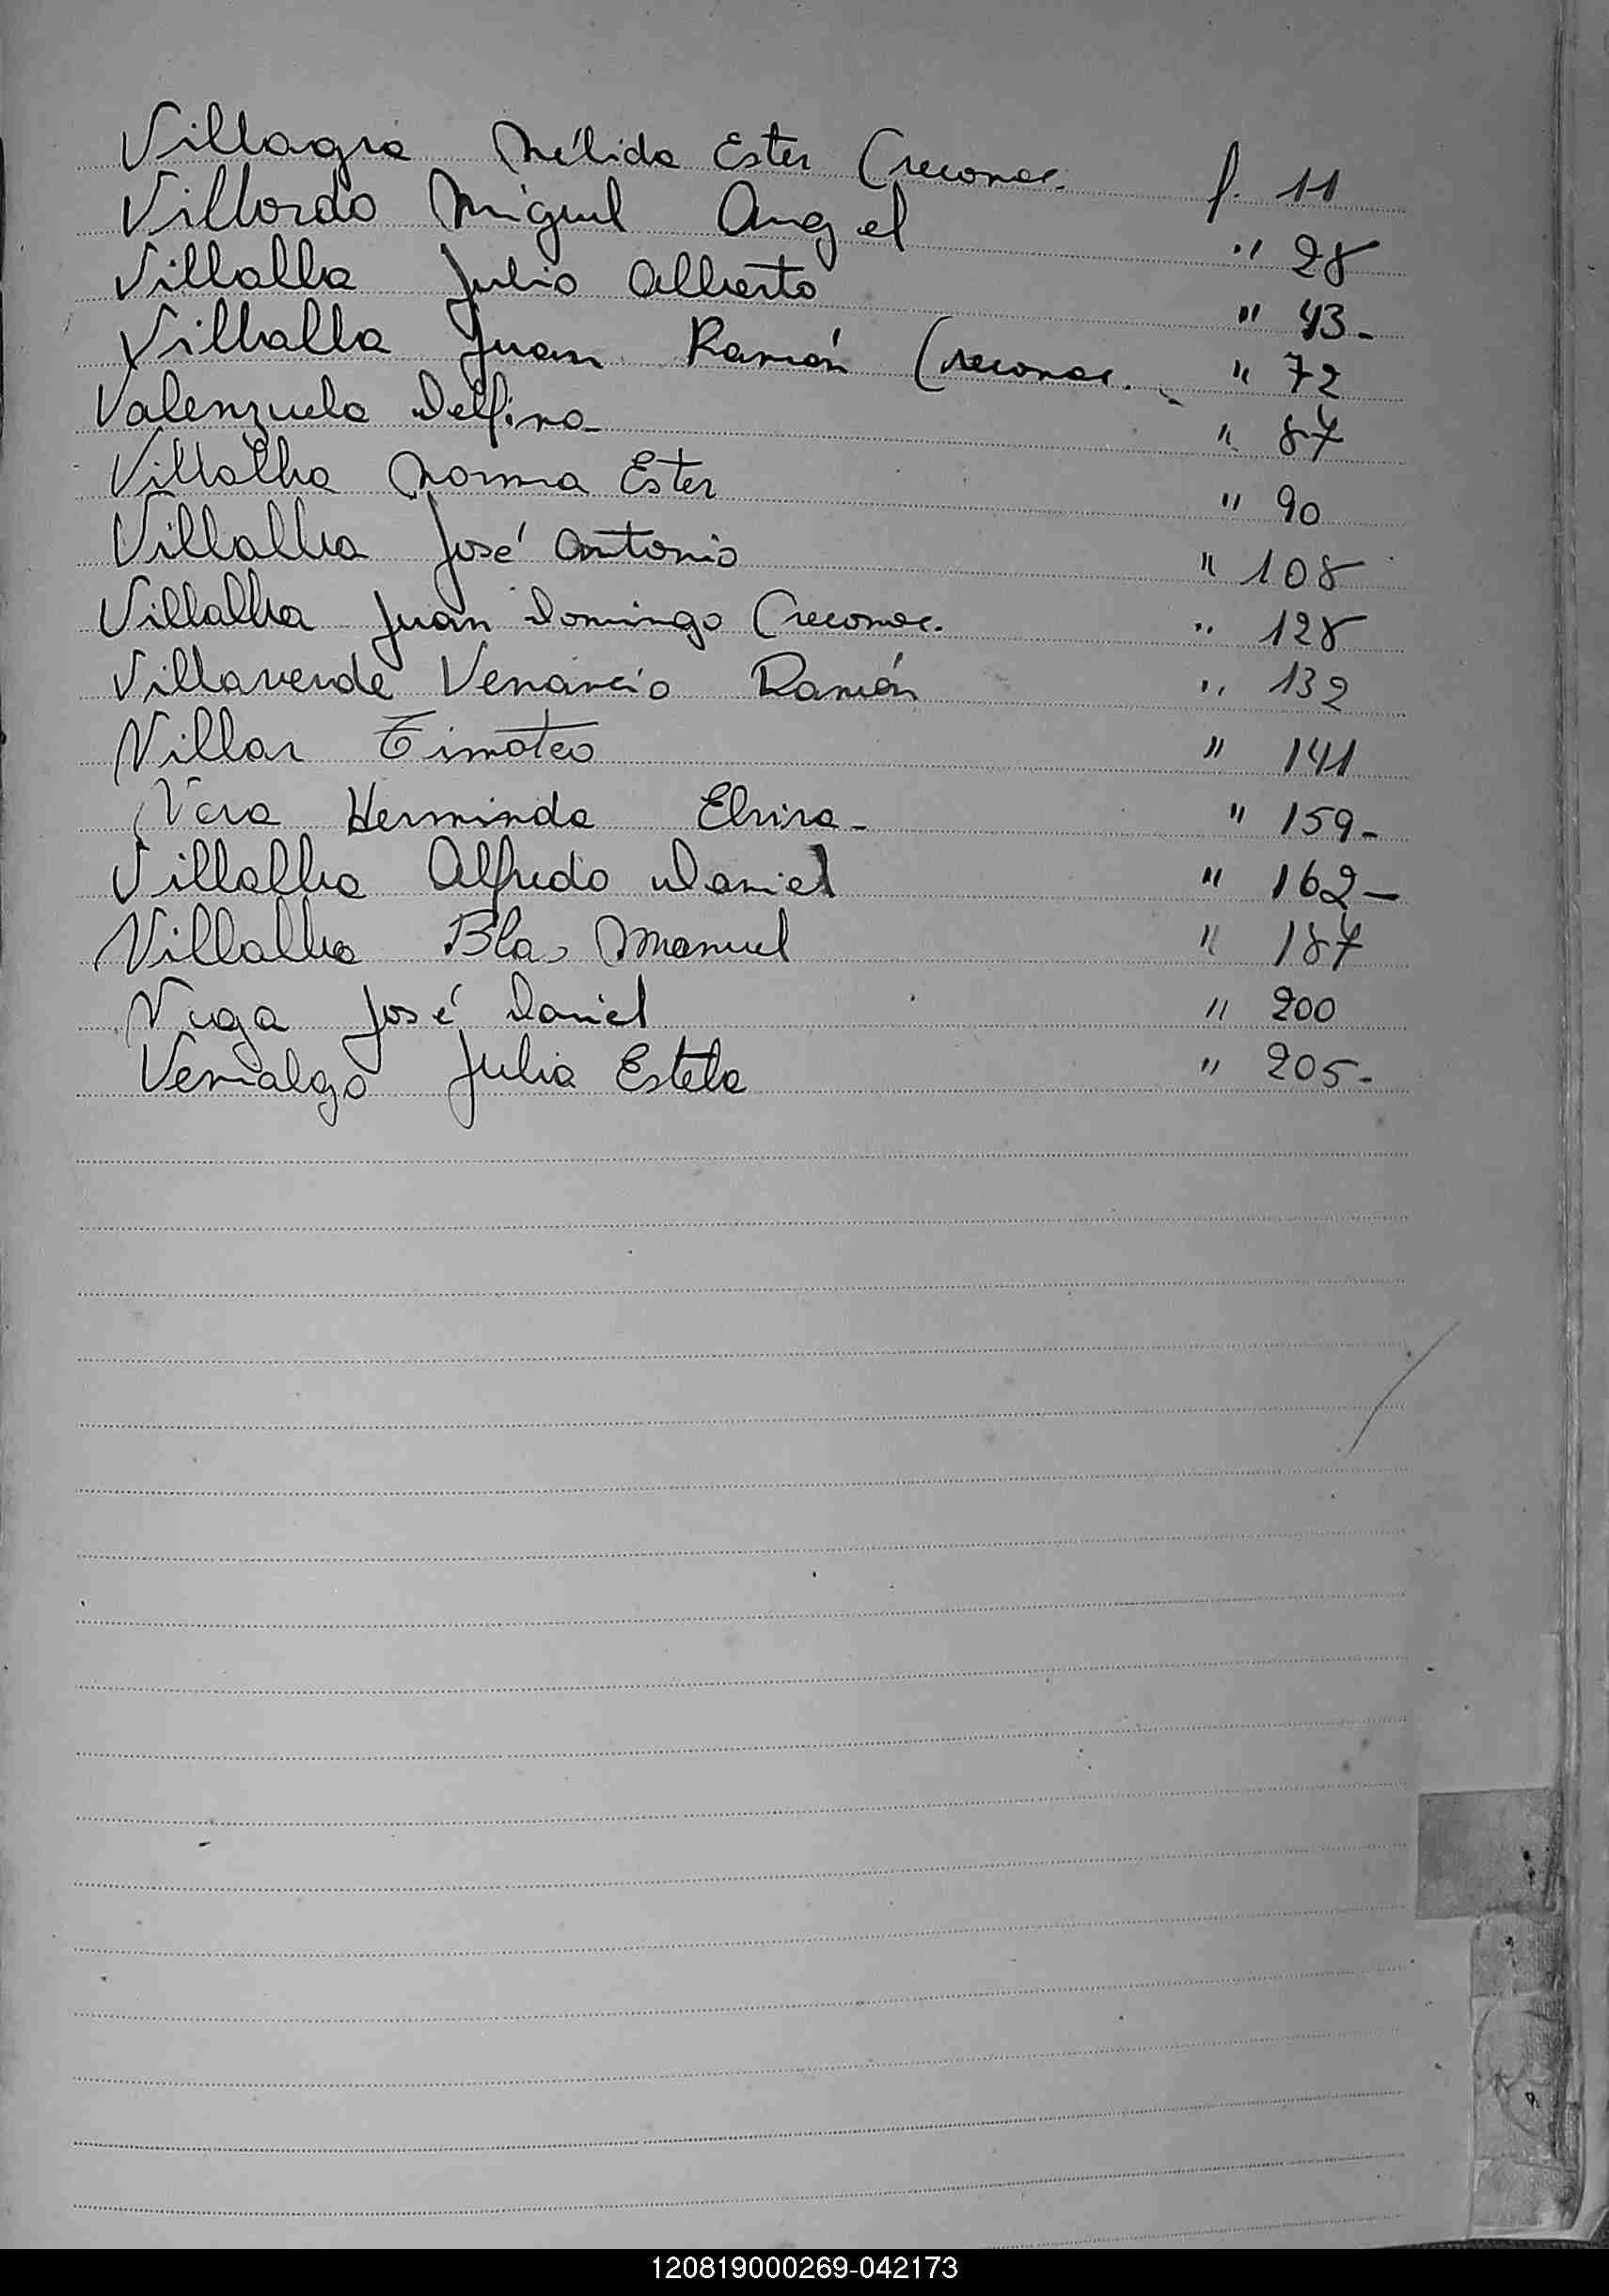 Villagra Nélida Ester (reconoc. f. 11
Villordo Miguel Angel " 28
Villalba Julio Alberto " 43-
Villalba Juan Ramón (reconoc. " 72
Valenzuela Delfino- " 87
Villalba Norma Ester " 90
Villalba José Antonio " 108
Villalba Juan Domingo (reconoc. " 128
Villaverde Venancio Ramón " 132
Villar Timoteo " 141
Vera Herminda Elvira- " 159-
Villalba Alfredo Daniel " 162-
Villalba Blas Manuel " 187
Vega José Daniel " 200
Vernalgo Julia Estela " 205-
120819000269-042173